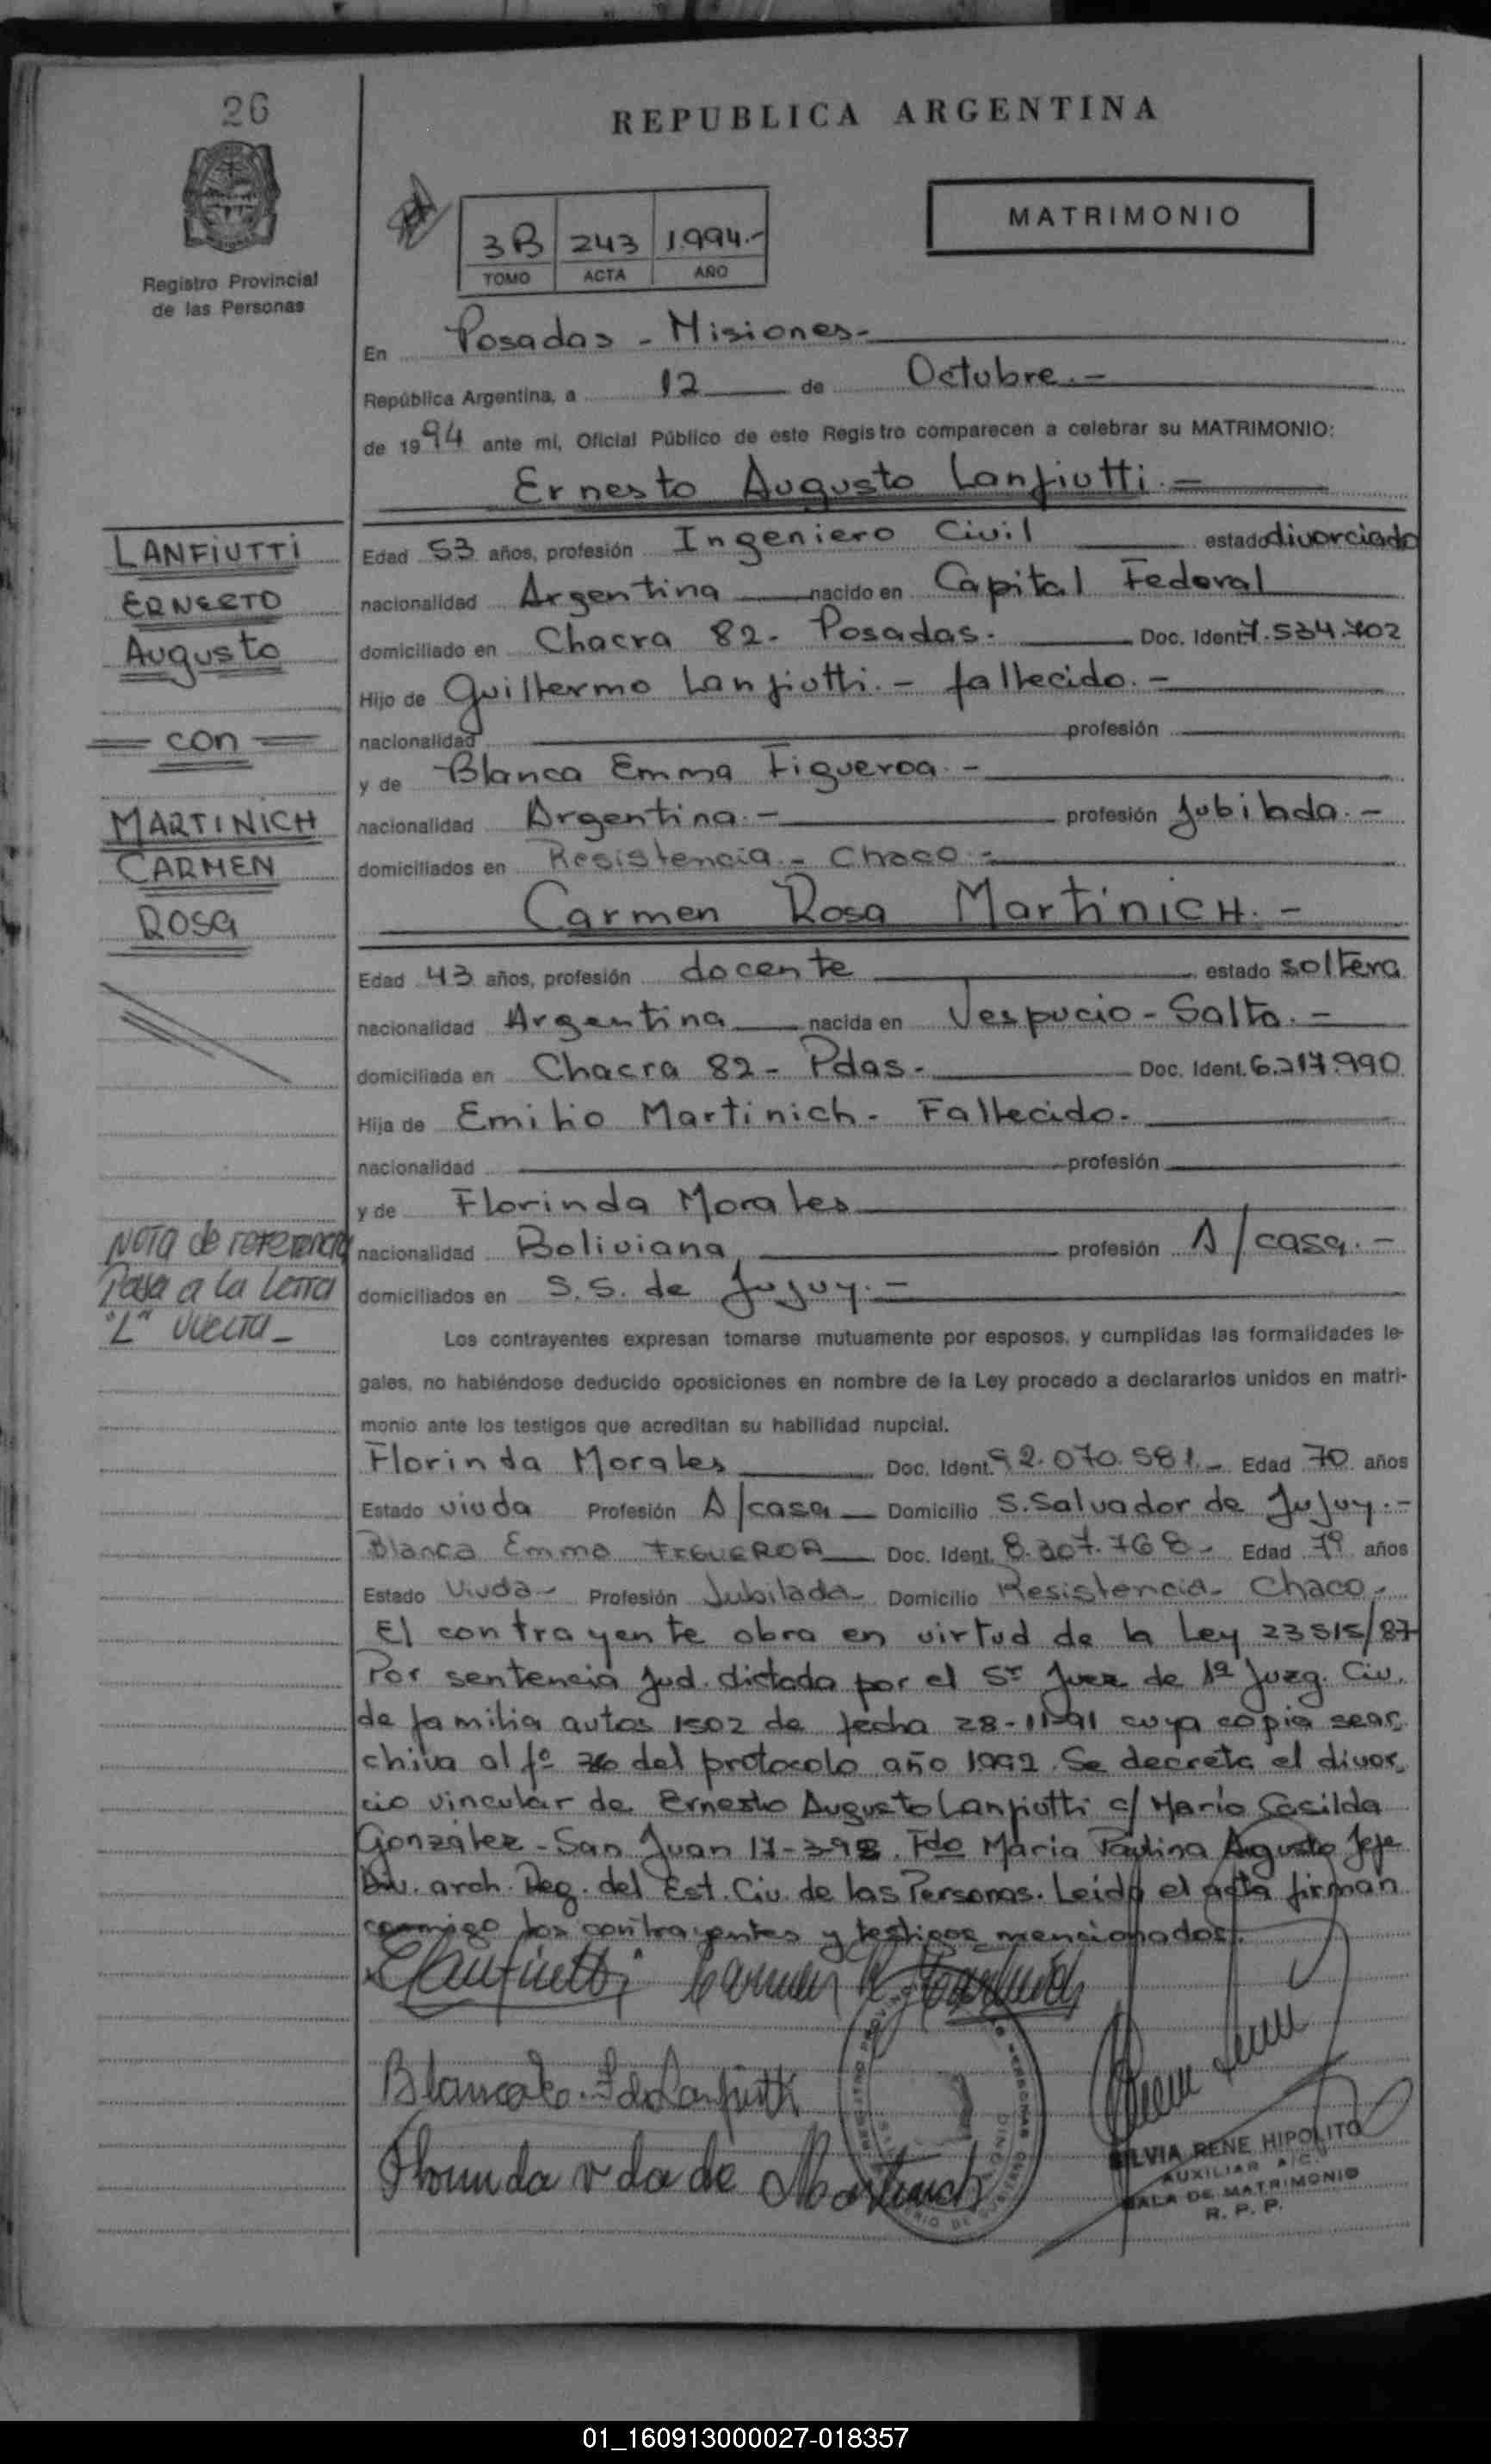 26
REPUBLICA ARGENTINA
MATRIMONIO
3B 243 1994.-
TOMO ACTA AÑO
Registro Provincial
de las Personas
En Posadas - Misiones-
República Argentina, a 12 de Octubre.-
de 1994 ante mí, Oficial Público de este Registro comparecen a celebrar su MATRIMONIO:
Ernesto Augusto Lanfiutti.-
LANFIUTTI
ERNESTO
Augusto
= con =
MARTINICH
CARMEN
ROSA
Edad 53 años, profesión Ingeniero Civil estado divorciado
nacionalidad Argentina nacido en Capital Federal
domiciliado en Chacra 82- Posadas- Doc. Ident. 7.534.702
Hijo de Guillermo Lanfiutti.- fallecido.-
nacionalidad profesión
y de Blanca Emma Figueroa.-
nacionalidad Argentina.- profesión Jubilada.-
domiciliados en Resistencia - Chaco.-
Carmen Rosa MartiniCH.-
Edad 43 años, profesión docente estado soltera
nacionalidad Argentina nacida en Vespucio - Salta.-
domiciliada en Chacra 82- Pdas- Doc. Ident. 6.217.990
Hija de Emilio Martinich- Fallecido-
nacionalidad profesión
y de Florinda Morales
nacionalidad Boliviana profesión A/casa.-
domiciliados en S.S. de Jujuy.-
Nota de referencia
Pasa a la Letra
"L" Vuelta_
Los contrayentes expresan tomarse mutuamente por esposos, y cumplidas las formalidades le-
gales, no habiéndose deducido oposiciones en nombre de la Ley procedo a declararlos unidos en matri-
monio ante los testigos que acreditan su habilidad nupcial.
Florinda Morales Doc. Ident. 92.070.581.- Edad 70 años
Estado viuda Profesión A/casa Domicilio S.Salvador de Jujuy.-
Blanca Emma FIGUEROA Doc. Ident. 8.307.768- Edad 79 años
Estado Viuda- Profesión Jubilada- Domicilio Resistencia- Chaco-
El contrayente obra en virtud de la Ley 23515/87
Por sentencia Jud. dictada por el Sr Juez de 1ª Juzg. Civ.
de familia autos 1502 de fecha 28-11-91 cuya copia se ar
chiva al fº 36 del protocolo año 1992. Se decreta el divor
cio vincular de Ernesto Augusto Lanfiutti c/ María Casilda
González - San Juan 17-3-92. Fdo María Paulina Agusto Jefe
Div. arch. Reg. del Est. Civ. de las Personas. Leida el acta firman
conmigo los contrayentes y testigos mencionados.
ELanfiutti Carmen R Martinich
Blanca E. F de Lanfiutti
Florinda v da de Martinich
SILVIA RENE HIPOLITO
AUXILIAR A/C.
SALA DE MATRIMONIO
R. P. P.
01_160913000027-018357